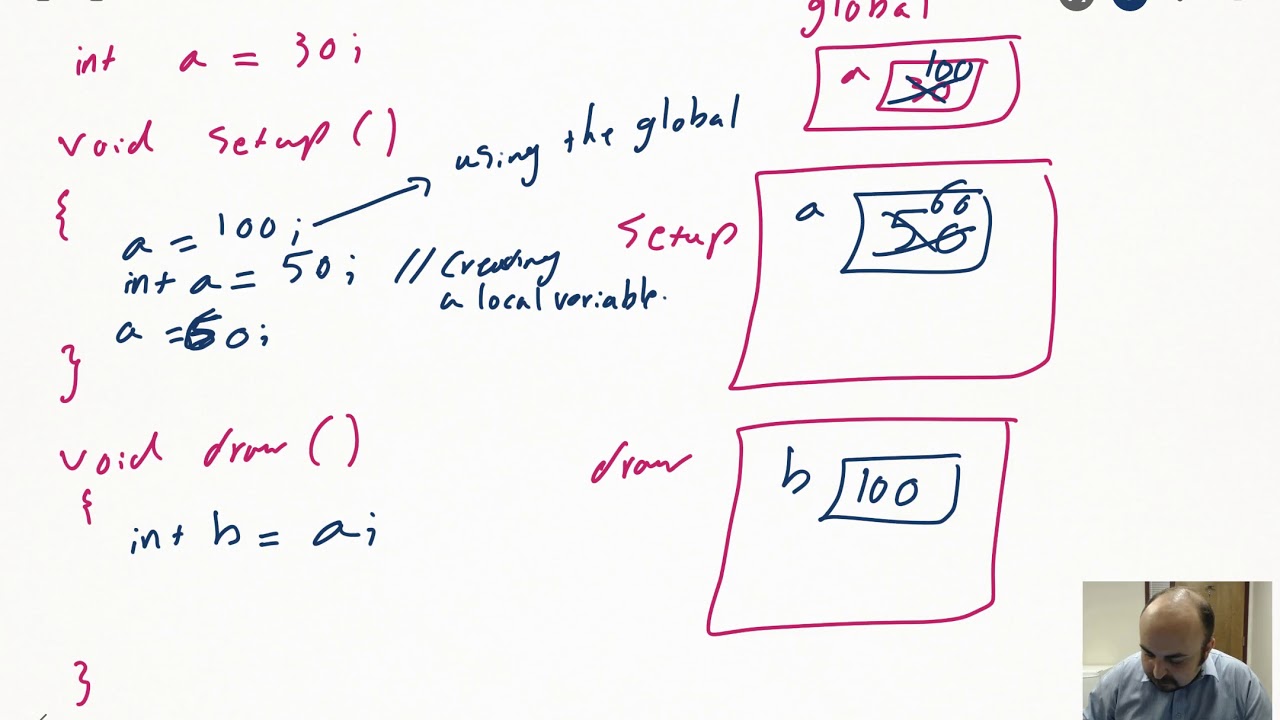 int a = 30;
void setup()
{
a = 100; using the global
int a = 50; // Creating
a local variable.
a = 60;
}
void draw()
{
int b = a;
}
global
a 30 100
setup
a 50 60
draw
b 100